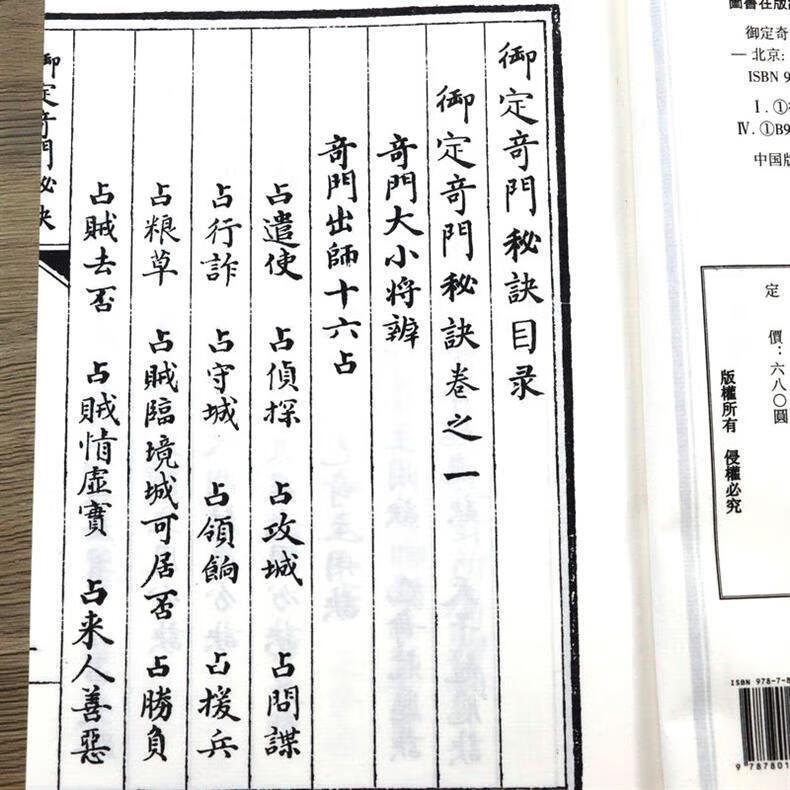 御定奇門秘訣目录
御定奇門秘訣卷之一
奇門大小将辨
奇門出師十六占
占遣使 占偵探 占攻城 占問諜
占行詐 占守城 占領餉 占援兵
占粮草 占賊臨境城可居否 占勝負
占賊去否 占賊情虛實 占来人善惡
御定奇門秘訣
圖書在版
御定奇
— 北京:
ISBN 9
Ⅰ. ①
Ⅳ. ①B9
中国版
定 價：六八〇圓
版權所有 侵權必究
ISBN 978-7-8
9 787801